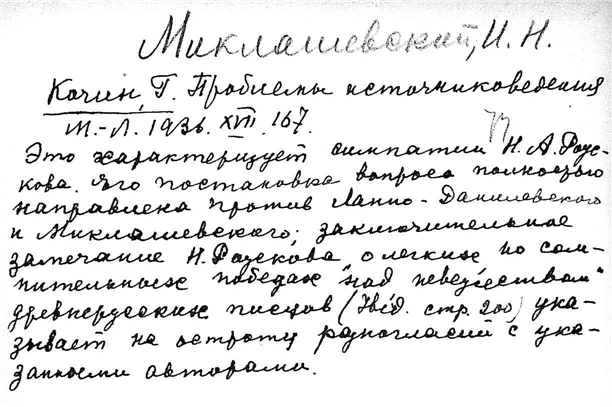 Миклашевский, И. Н.
Кочин, Г. Проблемы источниковедения
М.-Л. 1936. XVII. 167.
Это характеризует симпатии Н. А. Рож-
кова. Его постановка вопроса полностью
направлена против Лаппо-Данилевского
и Миклашевского; заключительное
замечание Н. Рожкова о легких но сом-
нительных победах "над невежеством"
древнерусских писцов (Ibid. стр. 200) ука-
зывает на остроту разногласий с ука-
занными авторами.